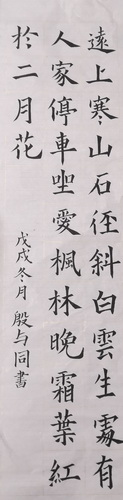 遠上寒山石徑斜白雲生處有
人家停車坐愛楓林晚霜葉紅
於二月花
戊戌冬月殷与同書